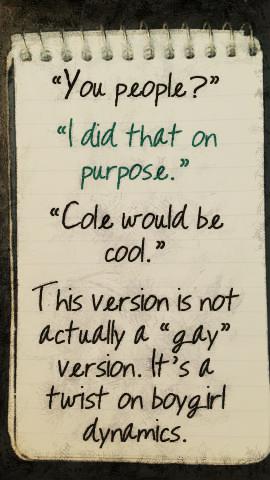 "You people?"
"I did that on
purpose."
"Cole would be
cool."
This version is not
actually a "gay"
version. It's a
twist on boygirl
dynamics.